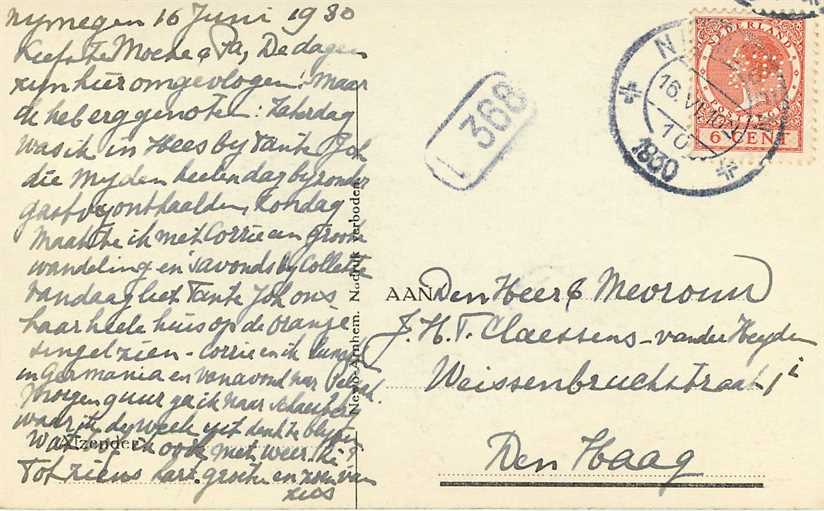 Nymegen 16 Juni 1930
Liefste Moeke & Pa, De dagen
zyn hier omgevlogen! Maar
ik heb erg genoten: Zaterdag
was ik in Hees by Tante Joh
die my den heelen dag byzonder
gastvry onthaalden, Zondag
maakte ik met Corrie een groote
wandeling en 's avonds by Collette
Vandaag liet Tante Joh ons
haar heele huis op de Oranje
singel zien - Corrie en ik
in Germania en vanavond naar
Morgen guur ga ik naar
waar ik de week uit denk te blyven
Wat ook met weer
Tot ziens hart. groeten en zoen van
zus
Afzender:
Nevo-Arnhem. Nadruk verboden
L 368
NEDERLAND
6 CENT
NIJ
16.VI.10
1930
AAN Den Heer & Mevrouw
J. H. T. Claessens-van der Heyden
Weissenbruchstraat 1
Den Haag